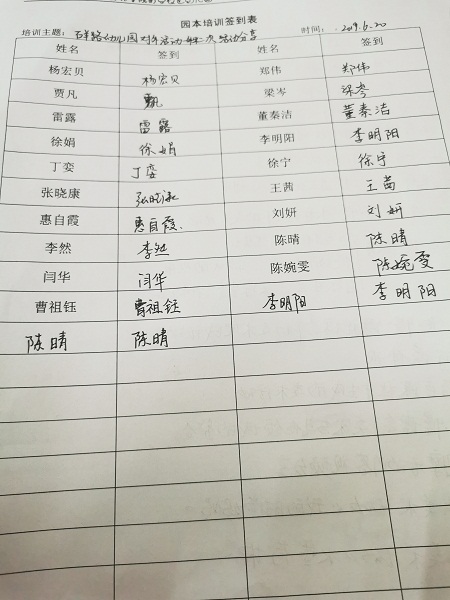 园本培训签到表
培训主题： 幼儿园 活动 活动分享 时间： 2019.6.20
姓名 签到 姓名 签到
杨宏贝 杨宏贝 郑伟 郑伟
贾凡 梁岑 梁岑
雷露 雷露 董秦洁 董秦洁
徐娟 徐娟 李明阳 李明阳
丁娈 丁娈 徐宁 徐宁
张晓康 张晓康 王茜 王茜
惠自霞 惠自霞 刘妍 刘妍
李然 李然 陈晴 陈晴
闫华 闫华 陈婉雯 陈婉雯
曹祖钰 曹祖钰 李明阳 李明阳
陈晴 陈晴